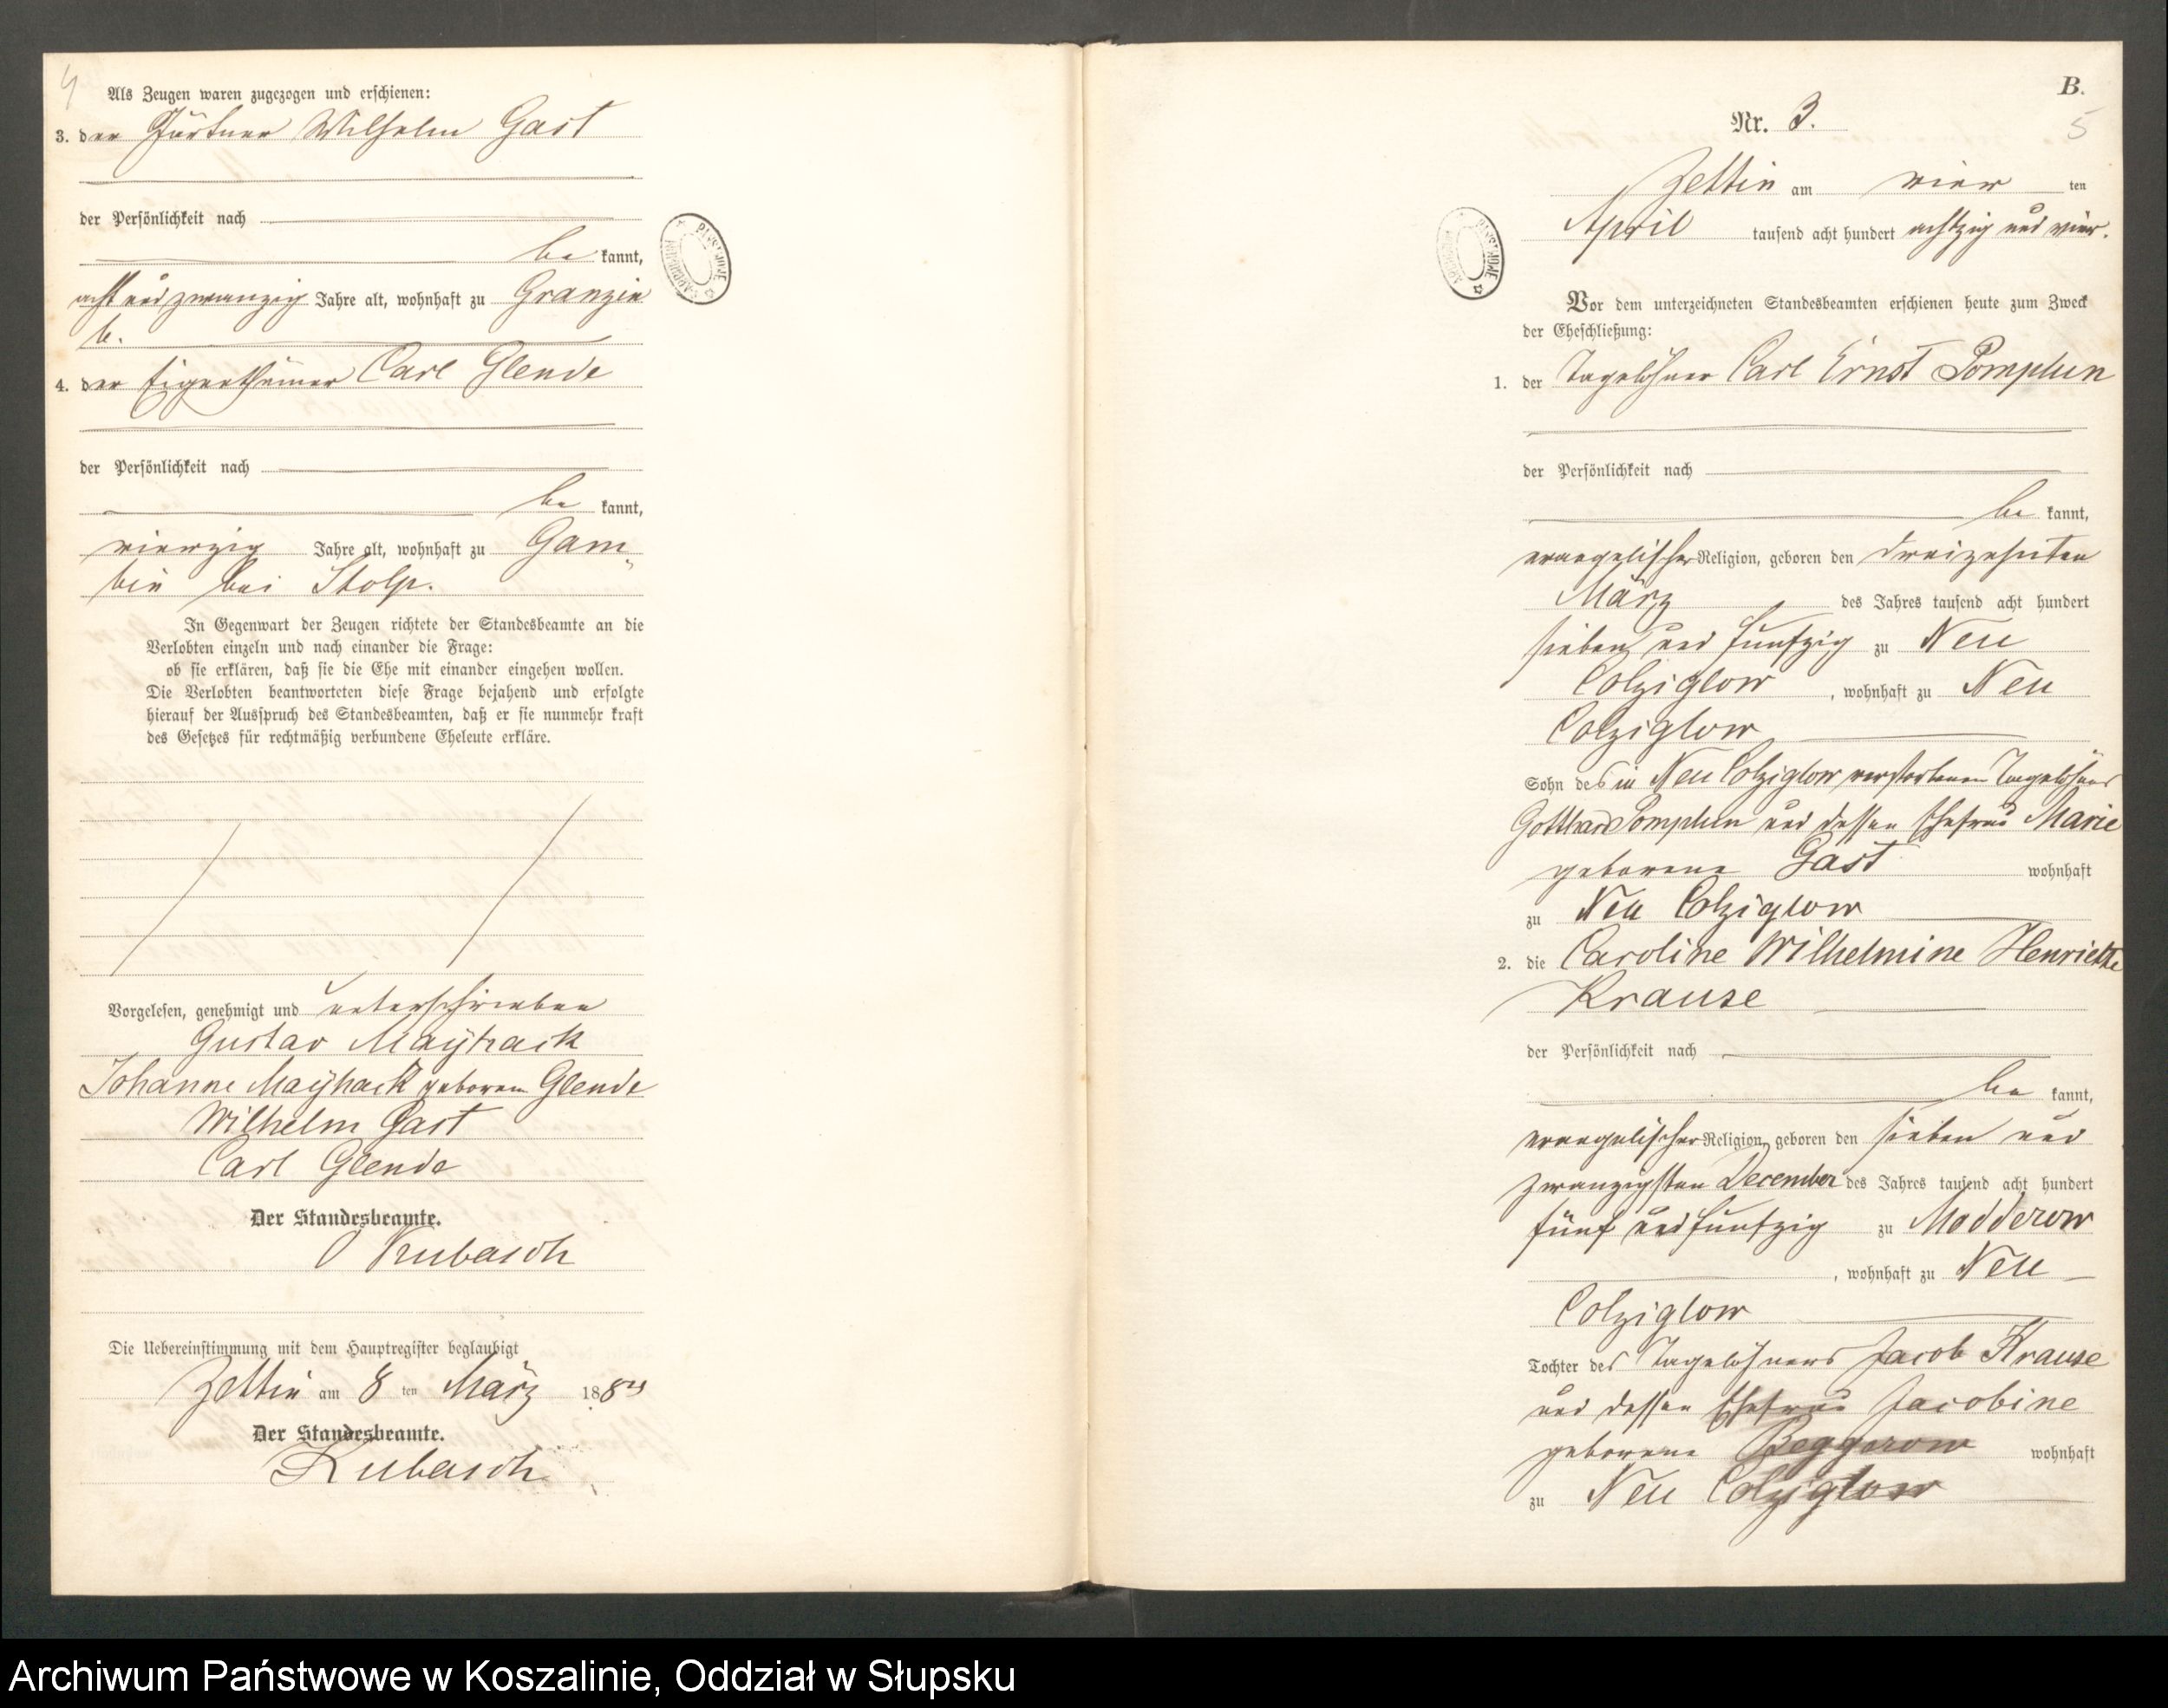 4
Als Zeugen waren zugezogen und erschienen:
3. der Gärtner Wilhelm Gast
der Persönlichkeit nach
be kannt,
acht und zwanzig Jahre alt, wohnhaft zu Granzin
b.
4. der Eigenthümer Carl Glende
der Persönlichkeit nach
be kannt,
vierzig Jahre alt, wohnhaft zu Gam„
bin bei Stolp.
In Gegenwart der Zeugen richtete der Standesbeamte an die
Verlobten einzeln und nach einander die Frage:
ob sie erklären, daß sie die Ehe mit einander eingehen wollen.
Die Verlobten beantworteten diese Frage bejahend und erfolgte
hierauf der Ausspruch des Standesbeamten, daß er sie nunmehr kraft
des Gesetzes für rechtmäßig verbundene Eheleute erkläre.
Vorgelesen, genehmigt und unterschrieben
Gustav Mayhack
Johanne Mayhack geboren Glende
Wilhelm Gast
Carl Glende
Der Standesbeamte.
Kubasch
Die Uebereinstimmung mit dem Hauptregister beglaubigt
Zettin am 8 ten März 1884
Der Standesbeamte.
Kubasch
B.
5
Nr. 3.
Zettin am vier ten
April tausend acht hundert achtzig und vier.
Vor dem unterzeichneten Standesbeamten erschienen heute zum Zweck
der Eheschließung:
1. der Tagelöhner Carl Ernst Pomplun
der Persönlichkeit nach
be kannt,
evangelischer Religion, geboren den dreizehnten
März des Jahres tausend acht hundert
sieben und funfzig zu Neu
Colziglow, wohnhaft zu Neu
Colziglow
Sohn des in Neu Colziglow verstorbenen Tagelöhners
Gotthard Pomplun und dessen Ehefrau Marie
geborene Gast wohnhaft
zu Neu Colziglow
2. die Caroline Wilhelmine Henriette
Krause
der Persönlichkeit nach
be kannt,
evangelischer Religion, geboren den sieben und
zwanzigsten December des Jahres tausend acht hundert
fünf und funfzig zu Modderow
, wohnhaft zu Neu
Colziglow
Tochter des Tagelöhners Jacob Krause
und dessen Ehefrau Jacobine
geborene Beggerow wohnhaft
zu Neu Colziglow
Archiwum Państwowe w Koszalinie, Oddział w Słupsku